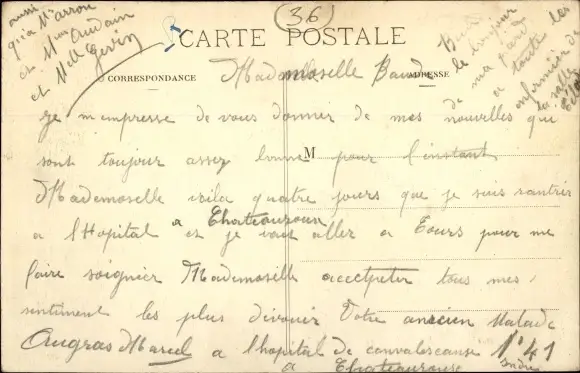 aussi
qu'a Mr arrou
et Mme Audain
et Melle Gervin
36
CARTE POSTALE
CORRESPONDANCE
ADRESSE
Mademoiselle Baud
le bonjour
de ma part
a toute les
enfirmière de
la salle
M
Je m'empresse de vous donner de mes nouvelles qui
sont toujour assez bonne pour l'instant
Mademoselle voila quatre jours que je suis rantrer
a l'Hopital a Chateauroux et je vait aller a Tours pour me
faire soignier Mademoselle acectpeter tous mes
sentiment les plus divouer Votre ancien Malade
Augras Marcel a l'hopital de convalescause N° 41
a Chateauroux Indre